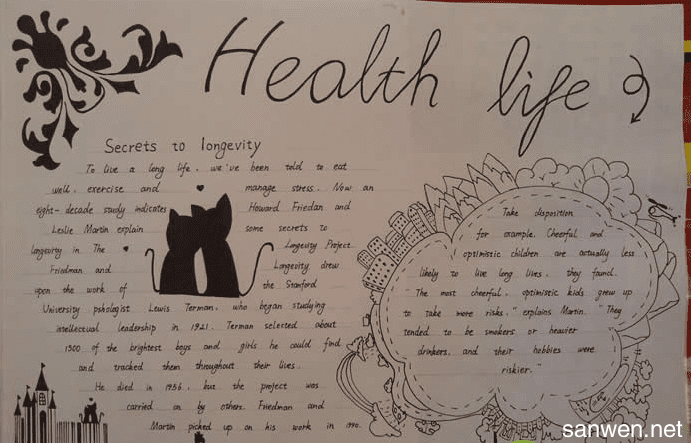 Health life
Secrets to longevity
To live a long life, we've been told to eat
well, exercise and manage stress. Now an
eight-decade study indicates Howard Friedan and
Leslie Martin explain some secrets to
longevity in The Longevity Project.
Friedman and Longevity drew
upon the work of the Stanford
University pshologist Lewis Terman, who began studying
intellectual leadership in 1921. Terman selected about
1500 of the brightest boys and girls he could find
and tracked them throughout their lives.
He died in 1956, but the project was
carried on by others. Friedman and
Martin picked up on his work in 1990.
Take disposition
for example. Cheerful and
optimistic children are actually less
likely to live long lives, they found.
"The most cheerful, optimistic kids grew up
to take more risks," explains Martin. "They
tended to be smokers or heavier
drinkers, and their hobbies were
riskier."
sanwen.net